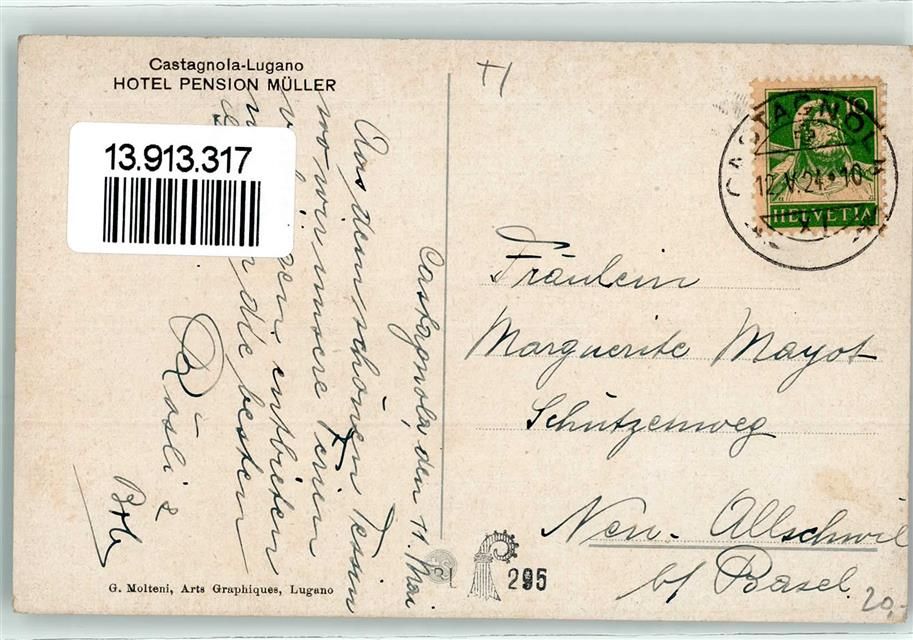 Castagnola-Lugano
HOTEL PENSION MÜLLER
13.913.317
Castagnola, den 11. Mai
Aus dem schönen Tessin
wo wir unsere Ferien
entbieten
die besten
Rösli &
Bob
G. Molteni, Arts Graphiques, Lugano
295
CASTAGNOLA
12.V.24.10
10
HELVETIA
Fräulein
Marguerite Mayot
Schützenweg
Neu-Allschwil
b/ Basel.
20,-